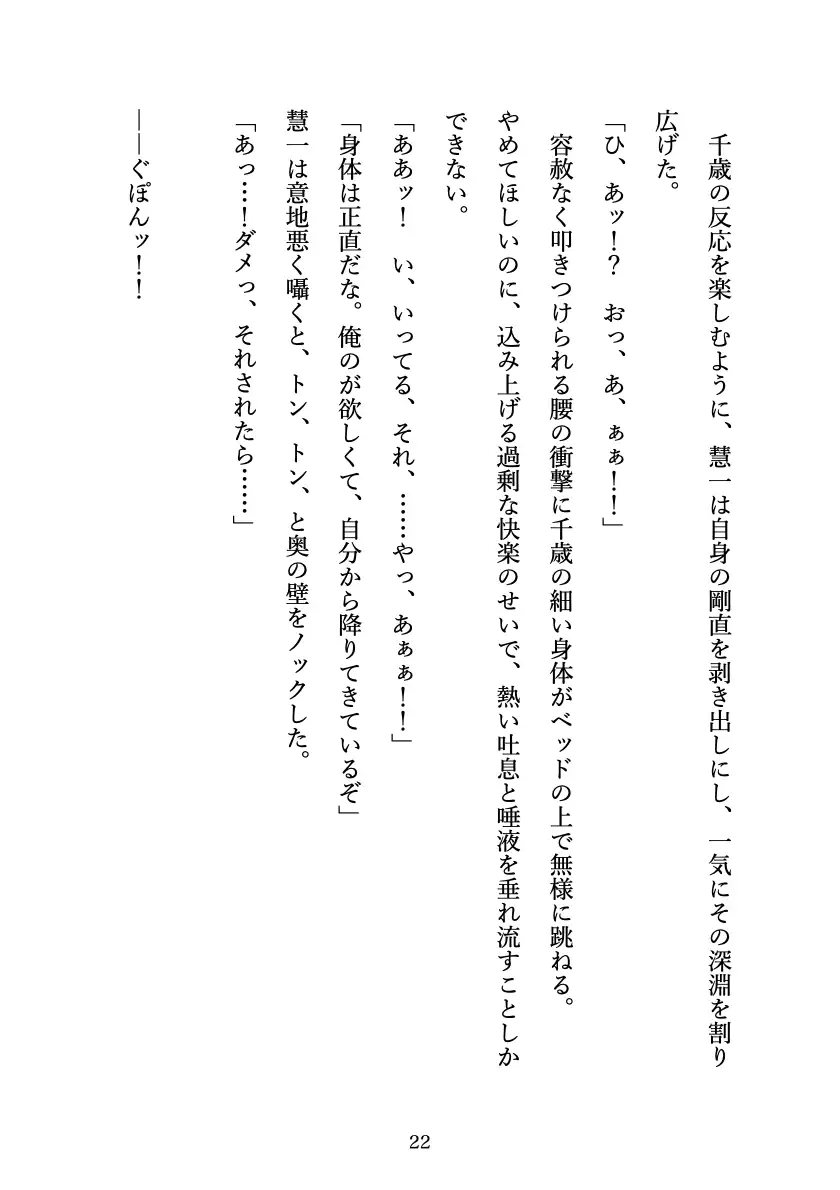 千歳の反応を楽しむように、慧一は自身の剛直を剥き出しにし、一気にその深淵を割り
広げた。
「ひ、あッ！？　おっ、あ、ぁぁ！！」
容赦なく叩きつけられる腰の衝撃に千歳の細い身体がベッドの上で無様に跳ねる。
やめてほしいのに、込み上げる過剰な快楽のせいで、熱い吐息と唾液を垂れ流すことしか
できない。
「ああッ！　い、いってる、それ、……やっ、あぁぁ！！」
「身体は正直だな。俺のが欲しくて、自分から降りてきているぞ」
慧一は意地悪く囁くと、トン、トン、と奥の壁をノックした。
「あっ…！ダメっ、それされたら……」
――ぐぽんッ！！
22